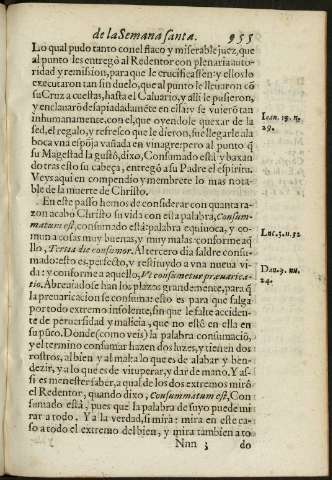 de la Semana santa. 955
Lo qual pudo tanto con el flaco y miserable juez, que
al punto les entregó al Redentor con plenaria auto-
ridad y remision, para que le crucificassen: y ellos lo
executaron tan sin duelo, que al punto le lleuaron cō
su Cruz a cuestas, hasta el Caluario, y alli le pusieron,
y enclauarō desapiadadamēte en ella: y se vuierō tan
inhumanamente con el, que oyendole quexar de la
sed, el regalo, y refresco que le dieron, fue llegarle a la
boca vna espōja vañada en vinagre: pero al punto q̄
su Magestad la gustó, dixo, Consumado está: y baxan
do tras esto su cabeça, entregò a su Padre el espiritu.
Veys aqui en compendio y membrete lo mas nota-
ble de la muerte de Christo.
En este passo hemos de considerar con quanta ra-
zon acabo Christo su vida con esta palabra, Consum-
matum est, consumado està: palabra equiuoca, y co-
mun a cosas muy buenas, y muy malas: conforme aq̄
llo, Tertia die consumor. Al tercero dia saldre consu-
mado: esto es, perfeto, y restituydo a vna nueua vi-
da: y conforme a aquello, Vt consumetur præuarica-
tio. Abreuiadose han los plazos grandemente, para q̄
la preuaricacion se consuma: esto es para que salga
por todo extremo insolente, sin que le falte acciden-
te de peruersidad y malicia, que no estē en ella en
su pūto. Donde (como veis) la palabra consumaciō,
y el termino consumar hazen dos luzes, y tienen dos
rostros, al bien y al mal: a lo que es de alabar y ben-
dezir, y a lo que es de vituperar, y dar de mano. Y as-
si es menester saber, a qual de los dos extremos mirò
el Redentor, quando dixo, Consummatum est, Con
sumado està, pues que la palabra de suyo puede mi
rar a todo. Y a la verdad, si mira: mira en este ca-
so a todo el extremo del bien, y mira tambien a to
Nnn 3 do
Ioan. 19. n.
29.
Luc. 3. n. 32
Dan. 9. nu.
24.